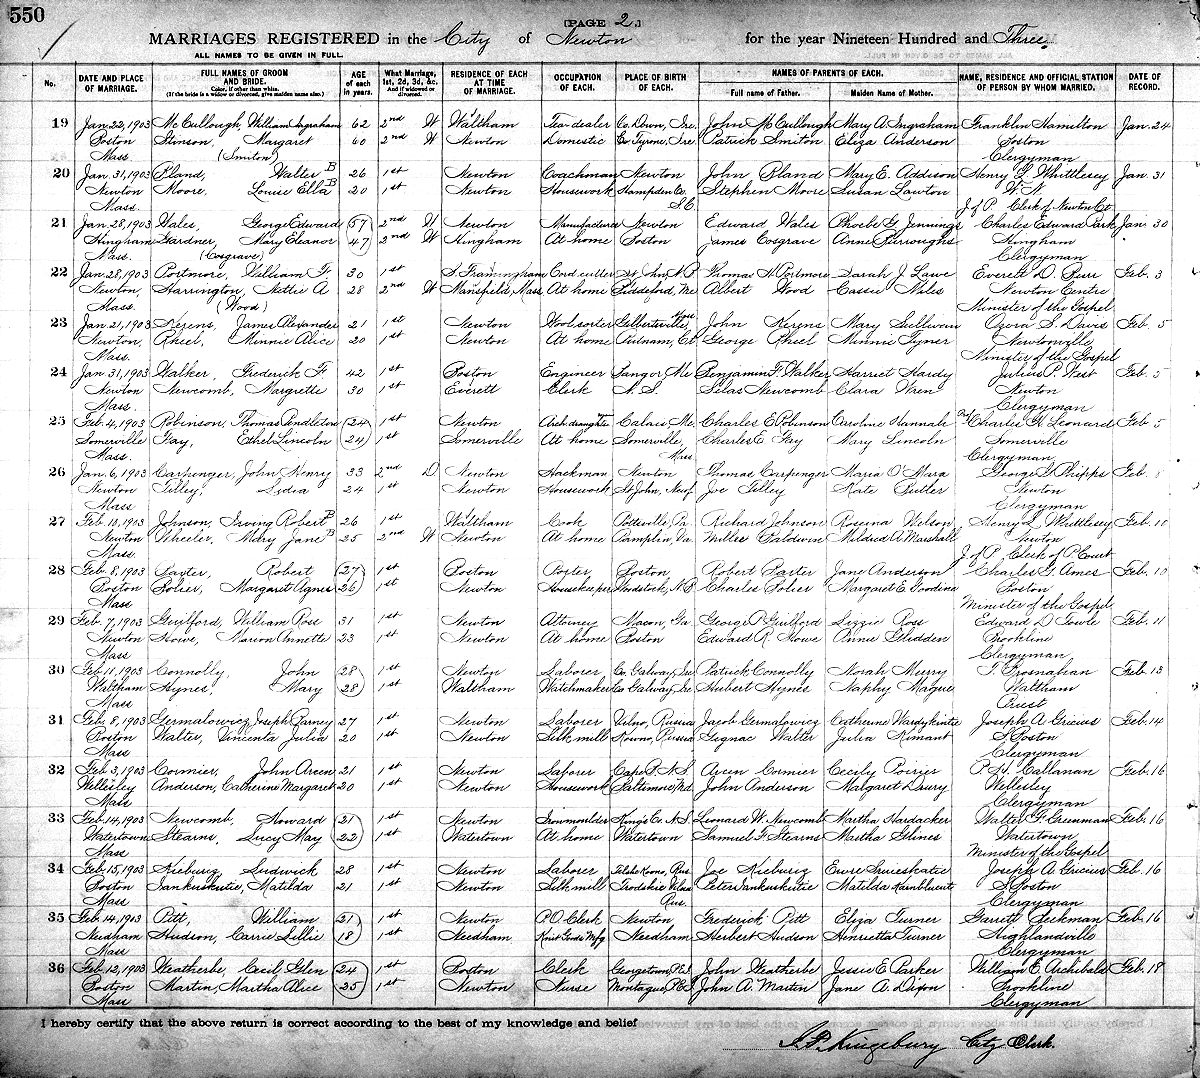 550
[PAGE 2.]
MARRIAGES REGISTERED in the City of Newton for the year Nineteen Hundred and Three.
ALL NAMES TO BE GIVEN IN FULL.
No. DATE AND PLACE OF MARRIAGE. FULL NAMES OF GROOM AND BRIDE. Color, if other than white. (If the bride is a widow or divorced, give maiden name also.) AGE of each in years. What Marriage, 1st, 2d, 3d, &c. And if widowed or divorced. RESIDENCE OF EACH AT TIME OF MARRIAGE. OCCUPATION OF EACH. PLACE OF BIRTH OF EACH. NAMES OF PARENTS OF EACH. Full name of Father. Maiden Name of Mother. NAME, RESIDENCE AND OFFICIAL STATION OF PERSON BY WHOM MARRIED. DATE OF RECORD.
19 Jan. 22, 1903 McCullough, William Ingraham 62 2nd W Waltham Tea-dealer Co. Down, Ire. John McCullough Mary A. Ingraham Franklin Hamilton Jan. 24
Boston Stinson, Margaret 60 2nd W Newton Domestic Co. Tyrone, Ire. Patrick Smiton Eliza Anderson Boston
Mass (Smiton) Clergyman
20 Jan. 31, 1903 Bland, Walter B 26 1st Newton Coachman Newton John Bland Mary E. Addison Henry L. Whittlesey Jan. 31
Newton Moore, Louise Ella B 20 1st Newton Housework Hampden Co. Stephen Moore Susan Lawton W. N.
Mass. S.C. J of P. Clerk of Newton Ct.
21 Jan. 28, 1903 Wales, George Edward 57 2nd W Newton Manufacturer Newton Edward Wales Phoebe G. Jennings Charles Edward Park Jan. 30
Hingham Gardner, Mary Eleanor 47 2nd W Hingham At home Boston James Cosgrave Anne Burroughs Hingham
Mass. (Cosgrave) Clergyman
22 Jan. 28, 1903 Portmore, William F. 30 1st S. Framingham Cord cutter St. John, N.B. Thomas H. Portmore Sarah J. Lawe Everett D. Burr Feb. 3
Newton, Harrington, Nettie A 28 2nd W Mansfield, Mass At home Biddeford, Me Albert Wood Cassie Miles Newton Centre
Mass. (Wood) Minister of the Gospel
23 Jan. 21, 1903 Kerens, James Alexander 21 1st Newton Woolsorter Gilbertville, Mass John Kerens Mary Sullivan Ozora S. Davis Feb. 5
Newton, Rheel, Minnie Alice 20 1st Newton At home Putnam, Ct George Rheel Minnie Tyner Newtonville
Mass. Minister of the Gospel
24 Jan. 31, 1903 Walker, Frederick F. 42 1st Boston Engineer Bangor Me Benjamin F. Walker Harriet Hardy Julius P. West Feb. 5
Newton Newcomb, Margrette 30 1st Everett Clerk N.S. Silas Newcomb Clara Wren Newton
Mass. Clergyman
25 Feb. 4, 1903 Robinson, Thomas Pendleton 24 1st Newton Arch draughts Calais, Me. Charles E. Robinson Caroline Hannah Charles H. Leonard Feb 5
Somerville Fay, Ethel Lincoln 24 1st Somerville At home Somerville, Charles E. Fay Mary Lincoln Somerville
Mass. Mass Clergyman
26 Jan. 6, 1903 Carpenger, John Henry 33 2nd D Newton Hackman Newton Thomas Carpenger Maria O'Mara George G. Phipps Feb. 8
Newton Tilley, Lidia 24 1st Newton Housework St John, Newf Joe Tilley Kate Butler Newton
Mass Clergyman
27 Feb. 10, 1903 Johnson, Irving Robert B 26 1st Waltham Cook Pottsville, Pa Richard Johnson Roserna Wilson Henry L. Whittlesey Feb. 10
Newton Wheeler, Mary Jane B 25 2nd W Newton At home Pamplin, Va. Willes Baldwin Mildred A. Marshall Newton
Mass. J. of P. Clerk of P. Court
28 Feb. 8, 1903 Baxter, Robert 27 1st Boston Porter Boston Robert Baxter Jane Anderson Charles G. Ames Feb. 10
Boston Bolier, Margaret Agnes 26 1st Newton Housekeeper Woodstock, N.B. Charles Bolier Margaret E. Goodine Boston
Mass Minister of the Gospel
29 Feb. 7, 1903 Guilford, William Rose 31 1st Newton Attorney Macon, Ga George P. Guilford Lizzie Rose Edward D. Towle Feb. 11
Newton Howe, Marion Annette 23 1st Newton At home Boston Edward R. Howe Annie Glidden Brookline
Mass Clergyman
30 Feb. 11, 1903 Connolly, John 28 1st Newton Laborer Co. Galway, Ire Patrick Connolly Norah Murry T. Brosnahan Feb. 13
Waltham Hynes, Mary 28 1st Waltham Watchmaker Co Galway, Ire Hubert Hynes Naphy Magus Waltham
Mass Priest
31 Feb. 8, 1903 Germalowicz, Joseph Barney 27 1st Newton Laborer Vilno, Russia Jacob Germalowicz Catherine Wardykintie Joseph A. Gricius Feb. 14
Boston Walter, Vincenta Julia 20 1st Newton Silk mill Kovno, Russia Gegnac Walter Julia Rimant S. Boston
Mass Clergyman
32 Feb. 3, 1903 Cormier, John Arcen 21 1st Newton Laborer Cape B. N.S. Arcen Cormier Cecily Poirier P. H. Callanan Feb. 16
Wellesley Anderson, Catherine Margaret 20 1st Newton Housework Baltimore, Md. John Anderson Malgaret Drury Wellesley
Mass Clergyman
33 Feb. 14, 1903 Newcomb, Howard 21 1st Newton Ironmoulder Kings Co. N.S. Leonard W. Newcomb Martha Hardacker Walter F. Greenman Feb. 16
Watertown Stearns, Lucy May 22 1st Watertown At home Watertown Samuel F. Stearns Martha Ghines Watertown
Mass Minister of the Gospel
34 Feb. 15, 1903 Kieburiz Ludwick 28 1st Newton Laborer Kovno, Rus. Joe Kieburiz Joseph A Gricius Feb. 16
Boston Jankuskutie, Matilda 21 1st Newton Silk mill Peter Jankuskutie Matilda S. Boston
Mass Rus. Clergyman
35 Feb. 14, 1903 Pitt, William 21 1st Newton P.O. Clerk Newton Frederick Pitt Eliza Turner Garrett Beekman Feb. 16
Needham Hudson, Carrie Lillie 18 1st Needham Knit Goods Mfg Needham Herbert Hudson Henrietta Turner Highlandville
Mass Clergyman
36 Feb. 12, 1903 Weatherbe, Cecil Glen 24 1st Boston Clerk Georgetown, P.E.I. John Weatherbe Jessie E. Parker William E. Archibald Feb. 18
Boston Martin, Martha Alice 25 1st Newton Nurse Montague, P.E.I. John A. Martin Jane A. Dixon Brookline
Mass Clergyman
I hereby certify that the above return is correct according to the best of my knowledge and belief
I. F. Kingsbury City Clerk.